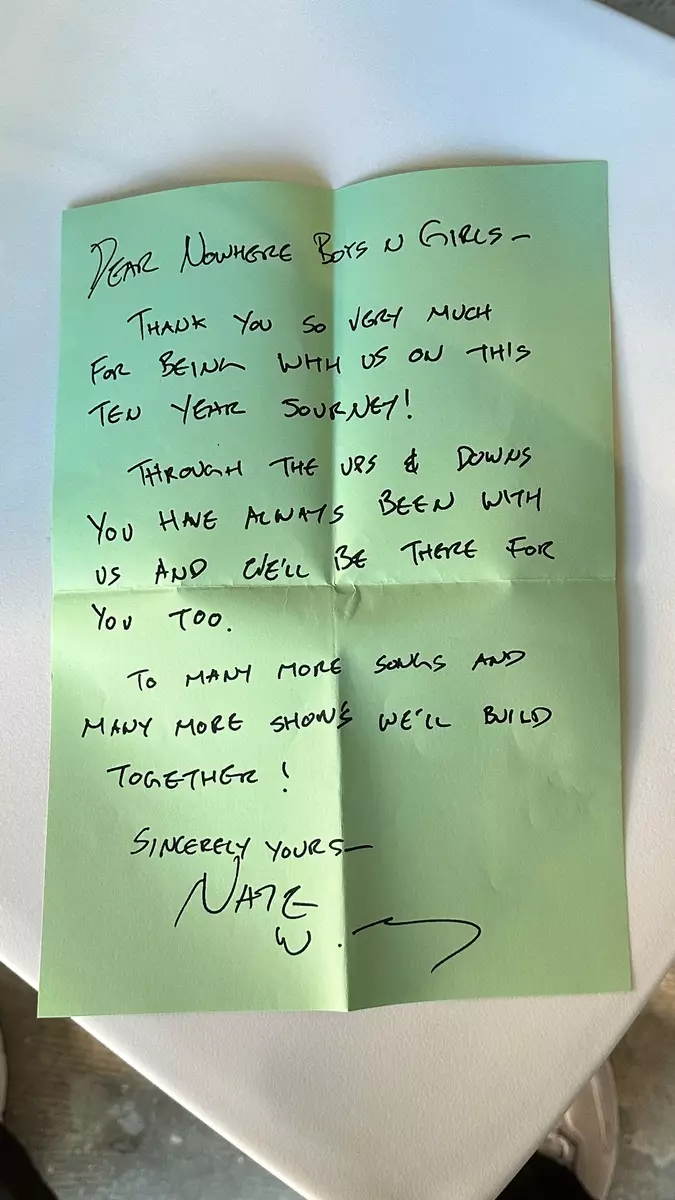 DEAR NOWHERE BOYS N GIRLS —
THANK YOU SO VERY MUCH
FOR BEING WITH US ON THIS
TEN YEAR JOURNEY!
THROUGH THE UPS & DOWNS
YOU HAVE ALWAYS BEEN WITH
US AND WE'LL BE THERE FOR
YOU TOO.
TO MANY MORE SONGS AND
MANY MORE SHOWS WE'LL BUILD
TOGETHER!
SINCERELY YOURS—
NATE
W.